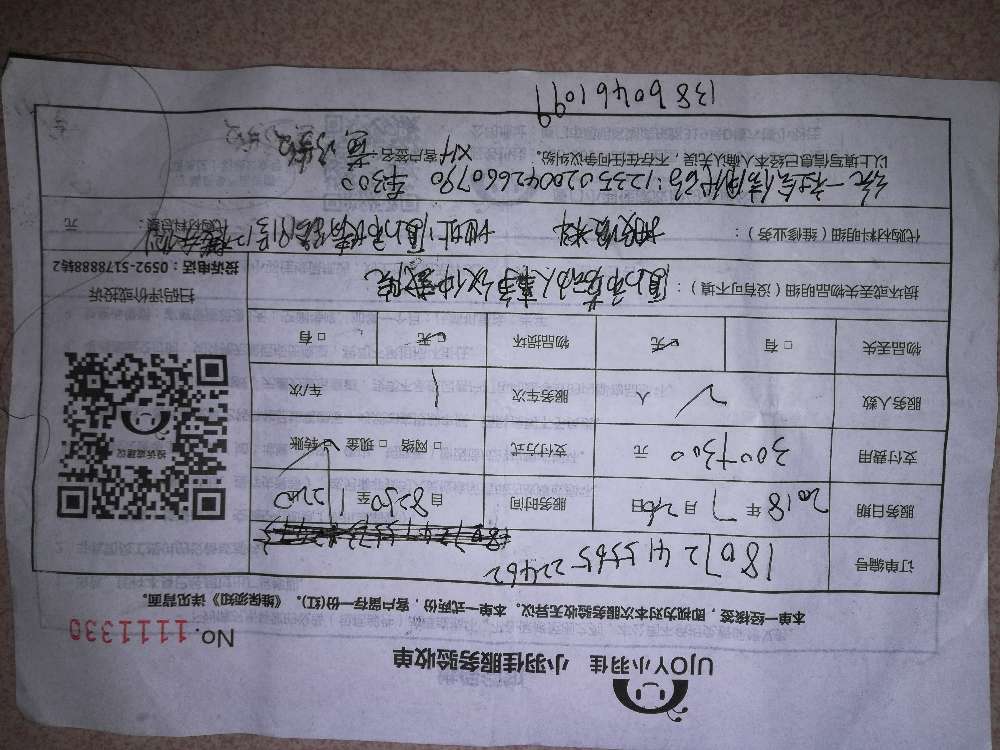 UJOY小羽佳 小羽佳服务验收单
No. 1111330
本单一经核签，即视为对本次服务验收无异议。本单一式两份，客户留存一份(红)。《维保须知》详见背面。
订单编号 18072415565 22462
服务日期 2018 年 7 月 26 日 服务时间 自 8:50 至 12:00
支付费用 300+300 元 支付方式 □ 网络 □ 现金 ☑ 转账
服务人数 2 人 服务车次 1 车/次
物品丢失 □ 有 ☑ 无 物品损坏 □ 有 ☑ 无
损坏或丢失物品明细（没有可不填）： 厦门市劳动人事争议仲裁院
代购材料明细（维修业务）： 地址：厦门市 代购材料总额： 元
统一社会信用代码：12350200426660790 XH 车300
以上填写信息已经本人确认无误，不存在任何争议纠纷。 客户签名：
13860461099
投诉或建议
扫码评价或投诉
投诉电话：0592-5178888转2